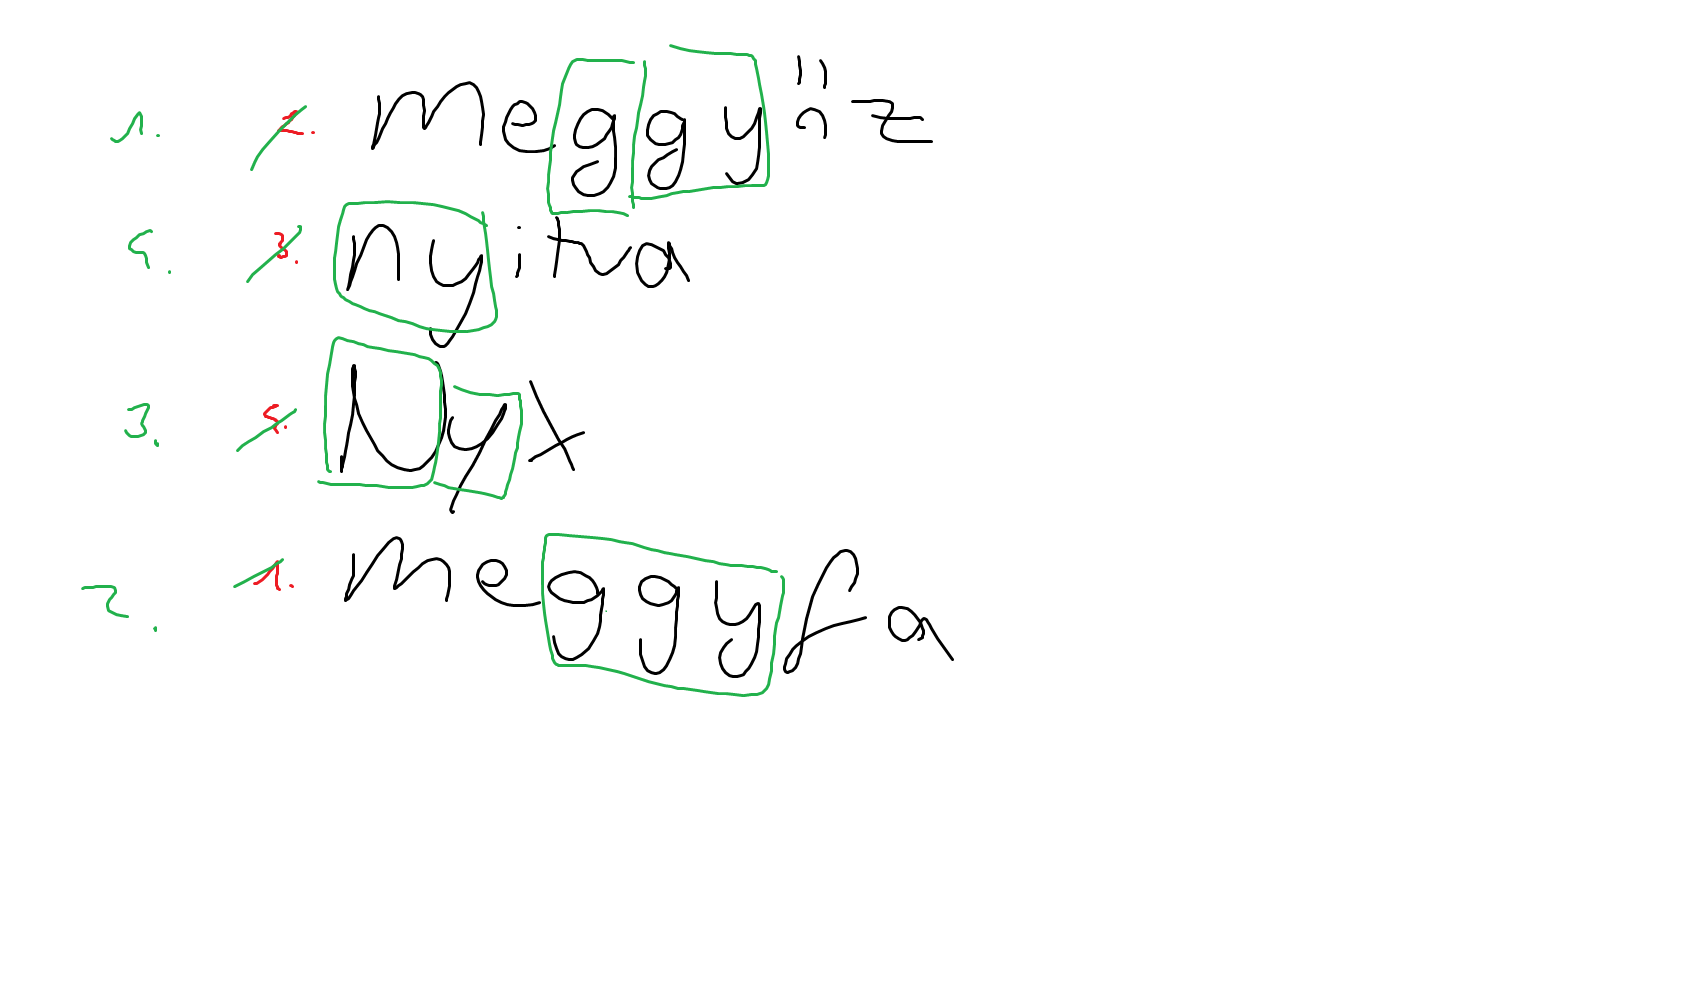 1. 2. meggyőz
4. 3. nyitva
3. 4. Nyx
2. 1. meggyfa